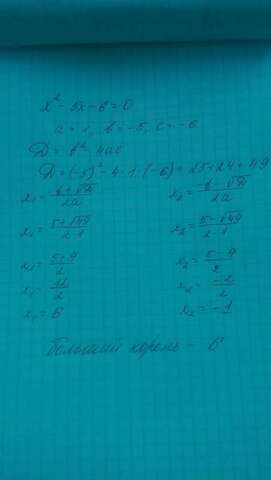 x² - 5x - 6 = 0
a = 1, b = -5, c = -6
D = b² - 4ac
D = (-5)² - 4·1·(-6) = 25 + 24 = 49
x₁ = (-b + √D) / 2a    x₂ = (-b - √D) / 2a
x₁ = (5 + √49) / 2·1    x₂ = (5 - √49) / 2·1
x₁ = (5 + 7) / 2    x₂ = (5 - 7) / 2
x₁ = 12 / 2    x₂ = -2 / 2
x₁ = 6    x₂ = -1
Больший корень - 6